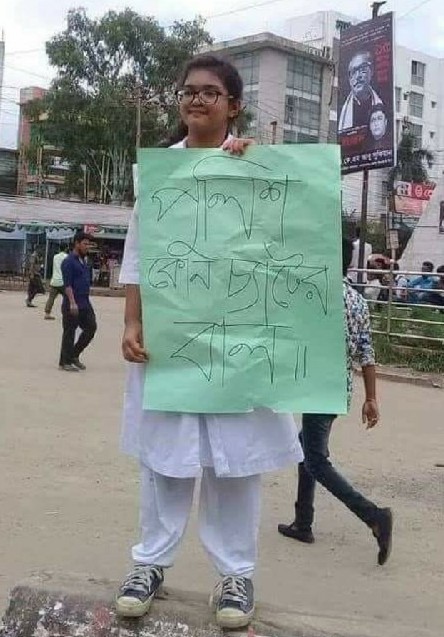 পুলিশ
কোন চ্যাটের
বাল॥